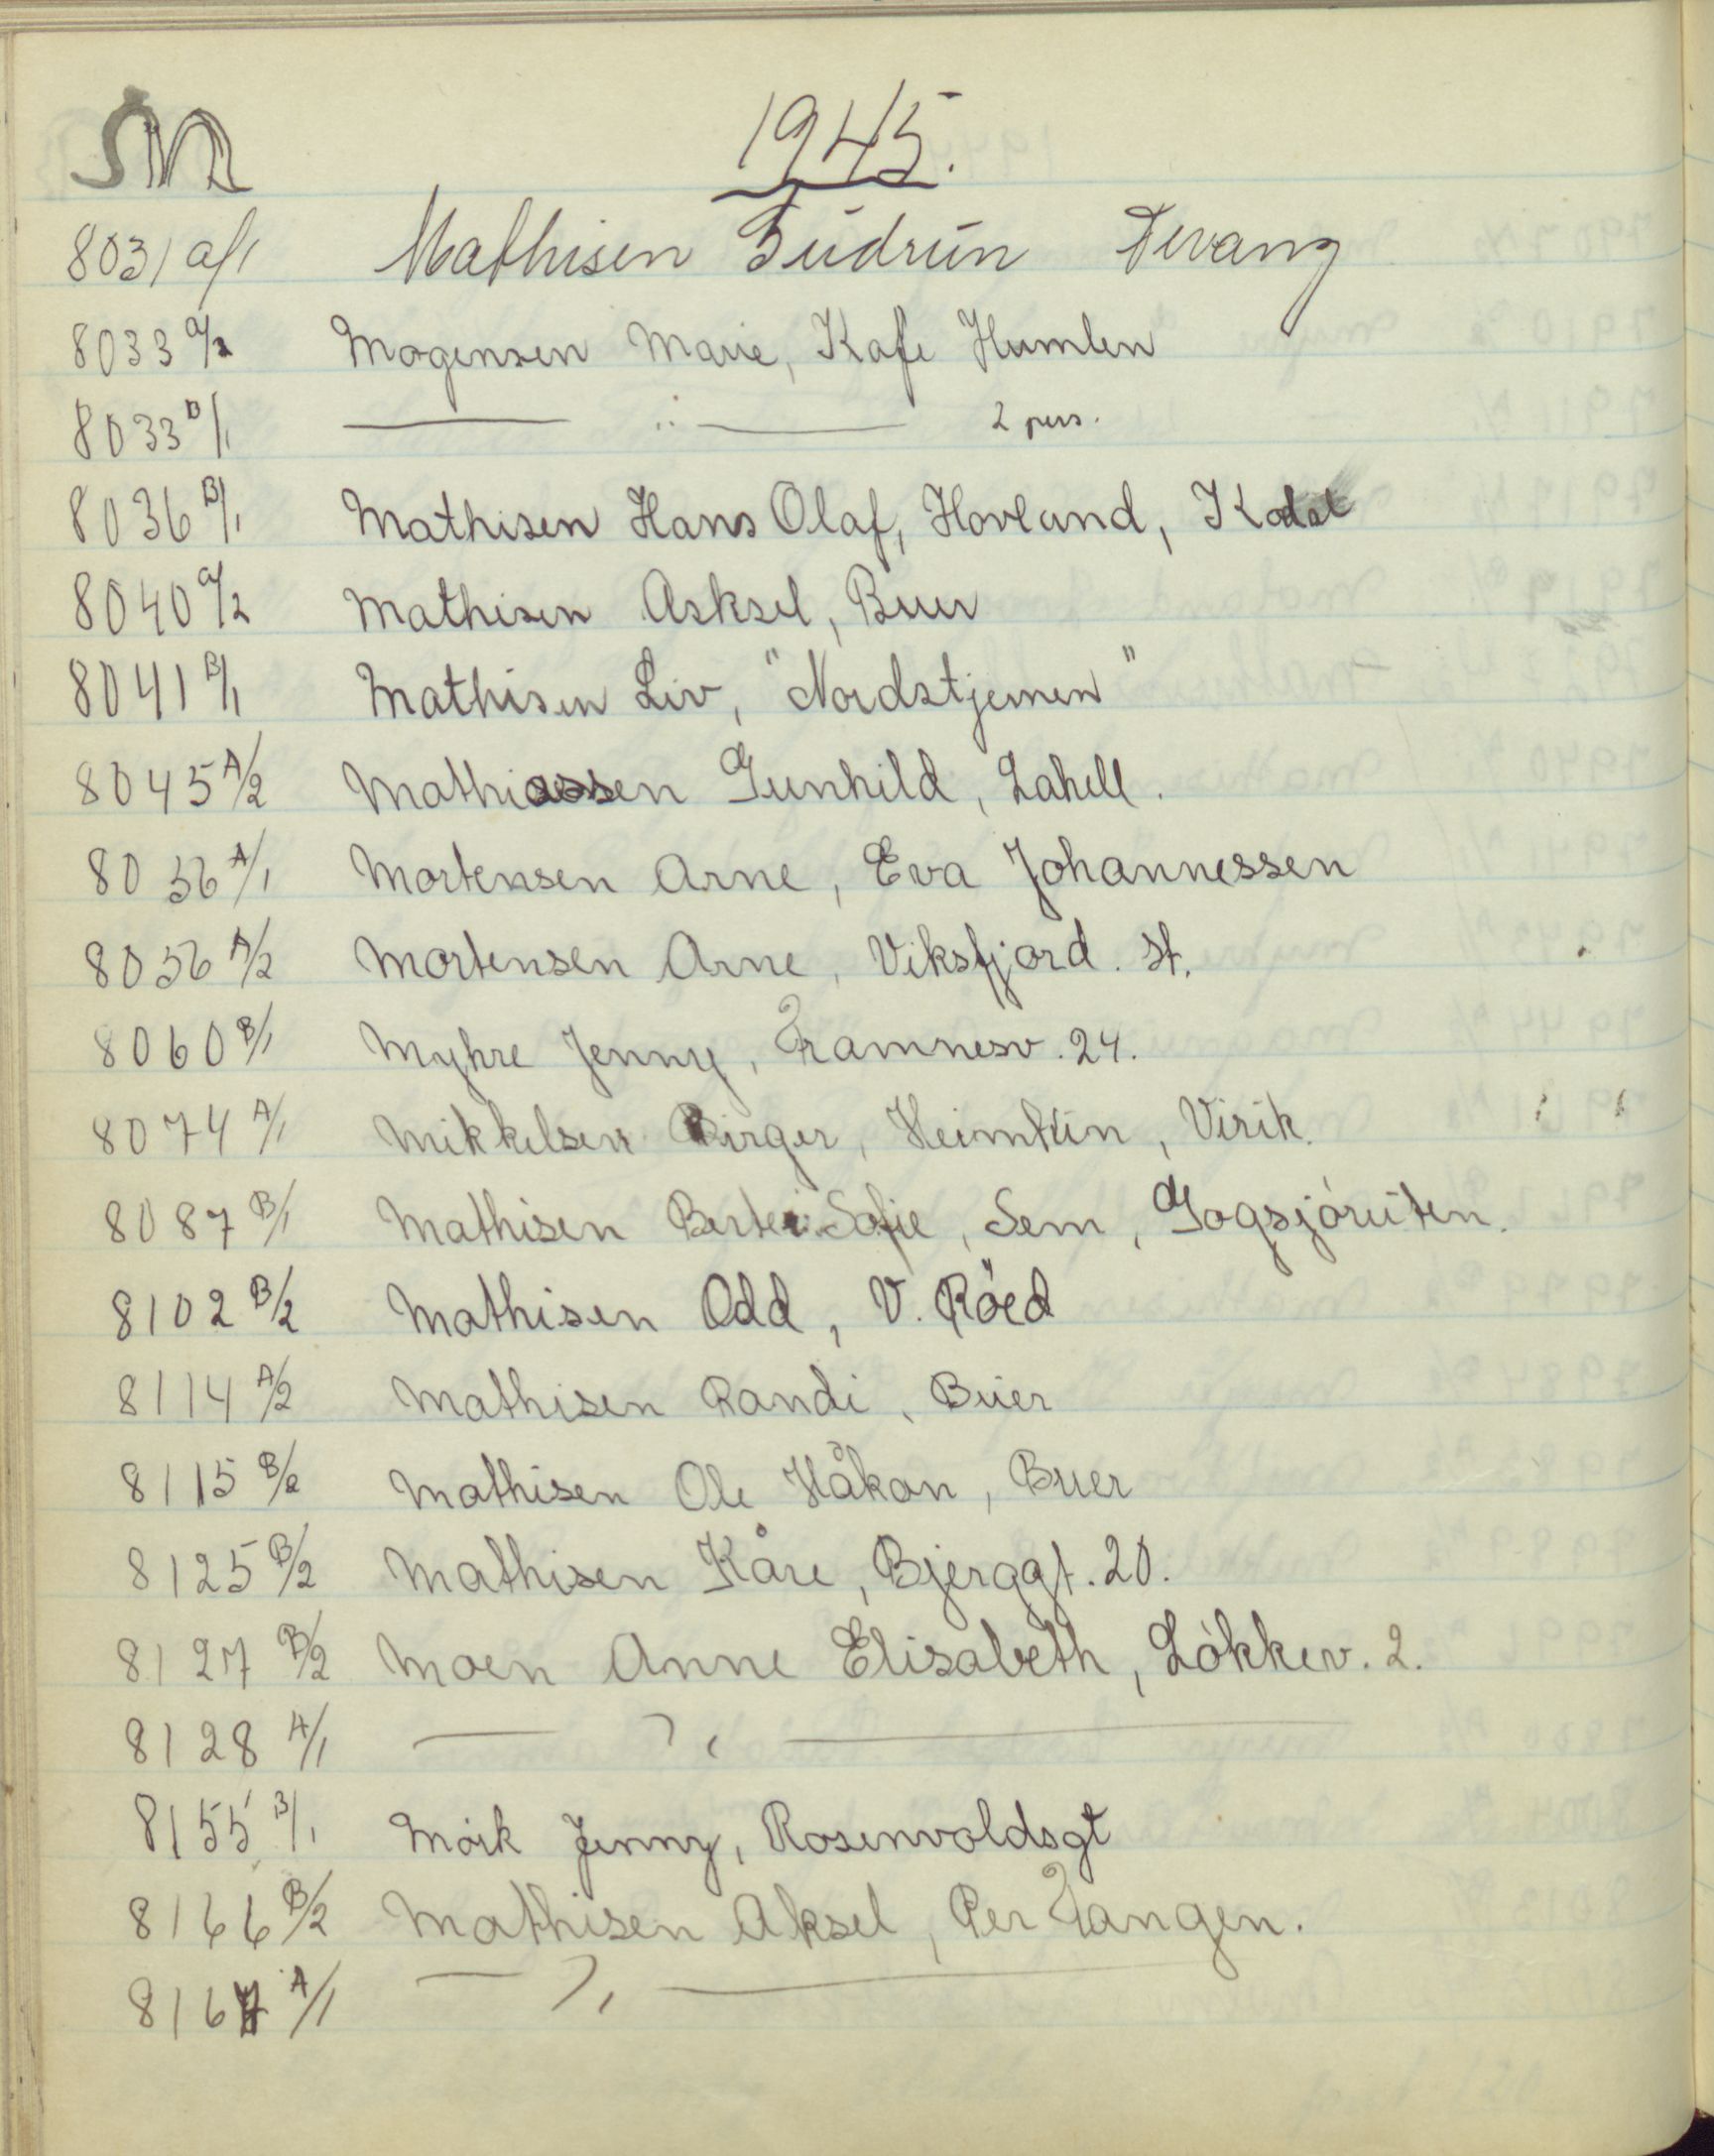 M 1945.
8031 a/1 Mathisen Gudrun Tevang
8033 a/2 Mogensen Marie, Kafe Humlen
8033 B/1 —— " —— 2 pers.
8036 B/1 Mathisen Hans Olaf, Hovland, Kodal
8040 a/2 Mathisen Asksel, Buer
8041 B/1 Mathisen Liv, "Nordstjernen"
8045 A/2 Mathiassen Gunhild, Lahell.
8056 A/1 Mortensen Arne, Eva Johannessen
8056 A/2 Mortensen Arne, Viksfjord. St.
8060 B/1 Myhre Jenny, Framnesv. 24.
8074 A/1 Mikkelsen Birger, Heimtun, Virik.
8087 B/1 Mathisen Berte Sofie, Sem, Gogsjöruten.
8102 B/2 Mathisen Odd, V. Röed
8114 A/2 Mathisen Randi, Buer
8115 B/2 Mathisen Ole Håkon, Buer
8125 B/2 Mathisen Kåre, Bjerggt. 20.
8127 B/2 Moen Anne Elisabeth, Lökkev. 2.
8128 A/1 —— " ——
8155 B/1 Mörk Jenny, Rosenvoldsgt
8166 B/2 Mathisen Aksel, Per Tangen.
8167 A/1 —— " ——